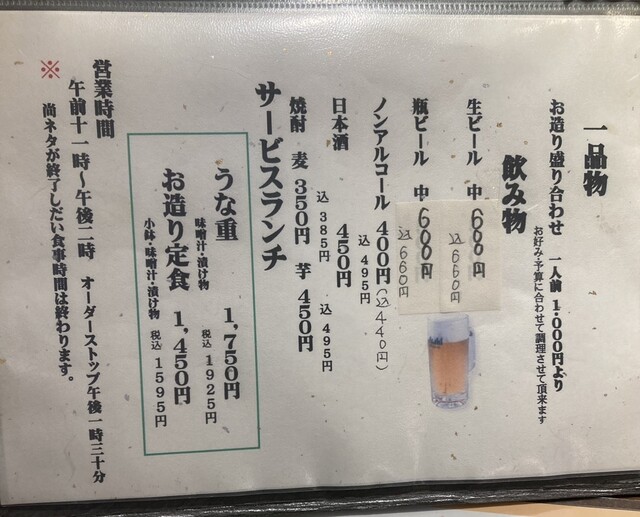 一品物
お造り盛り合わせ 一人前 1,000円より
お好み・予算に合わせて調理させて頂来ます
飲み物
生ビール 中 600円
込660円
瓶ビール 中 600円
込660円
ノンアルコール 400円(込440円)
込495円
日本酒 450円
込385円 込495円
焼酎 麦 350円 芋 450円
サービスランチ
うな重 1,750円
味噌汁・漬け物 税込1925円
お造り定食 1,450円
小鉢・味噌汁・漬け物 税込1595円
営業時間
午前十一時〜午後二時 オーダーストップ午後一時三十分
※ 尚ネタが終了しだい食事時間は終わります。